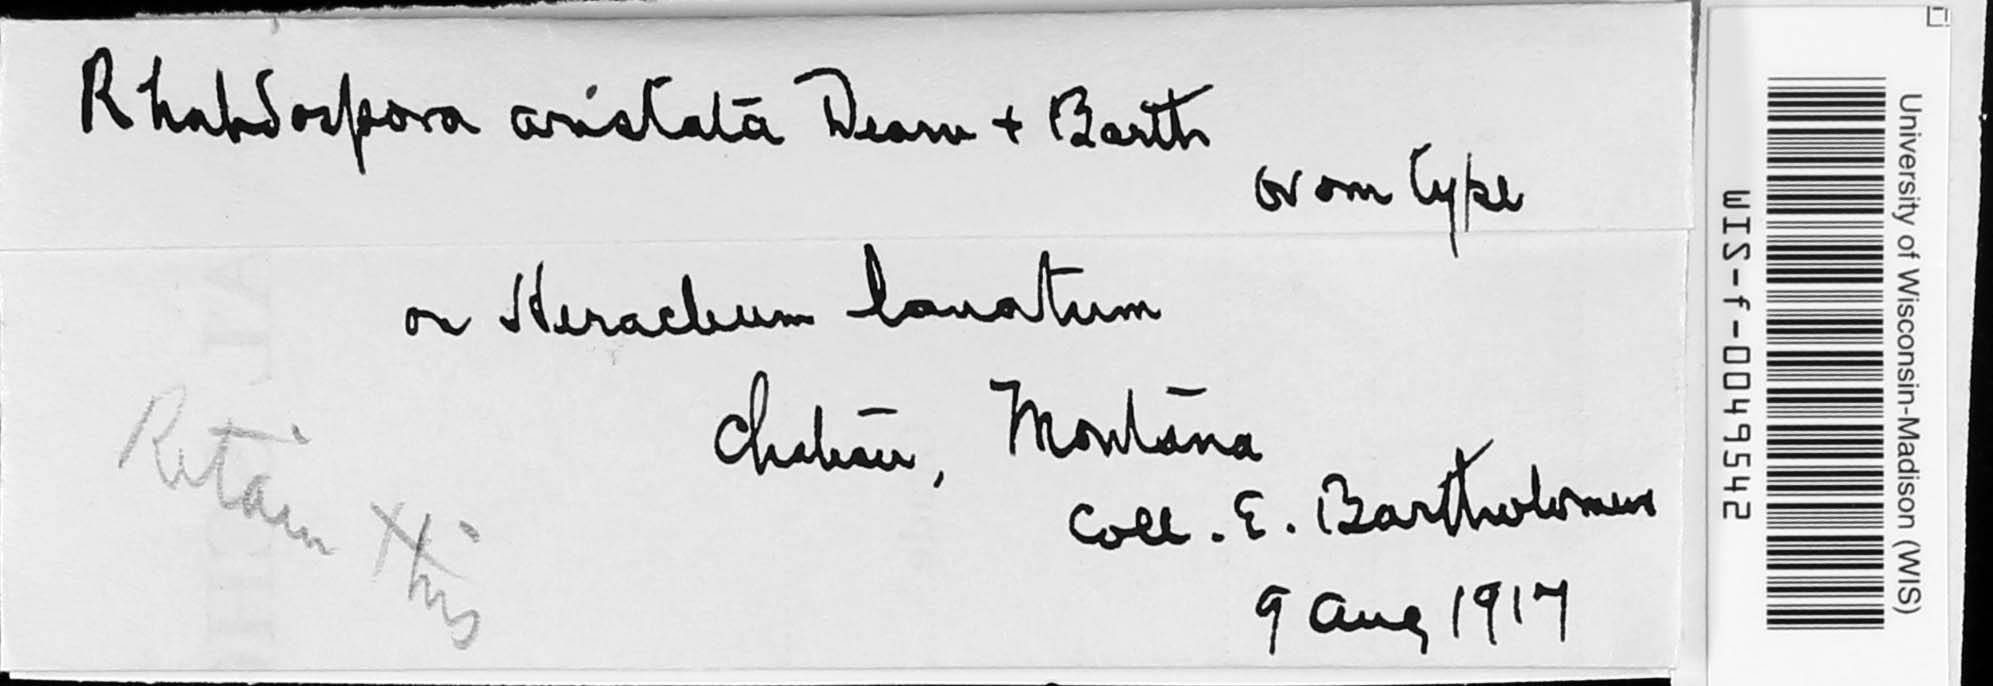 Rhabdospora aristata Dearn + Barth
on type
on Heracleum lanatum
Montana
Coll. E. Bartholomew
9 Aug 1917
Retain this
University of Wisconsin-Madison (WIS)
WIS-f-0049542